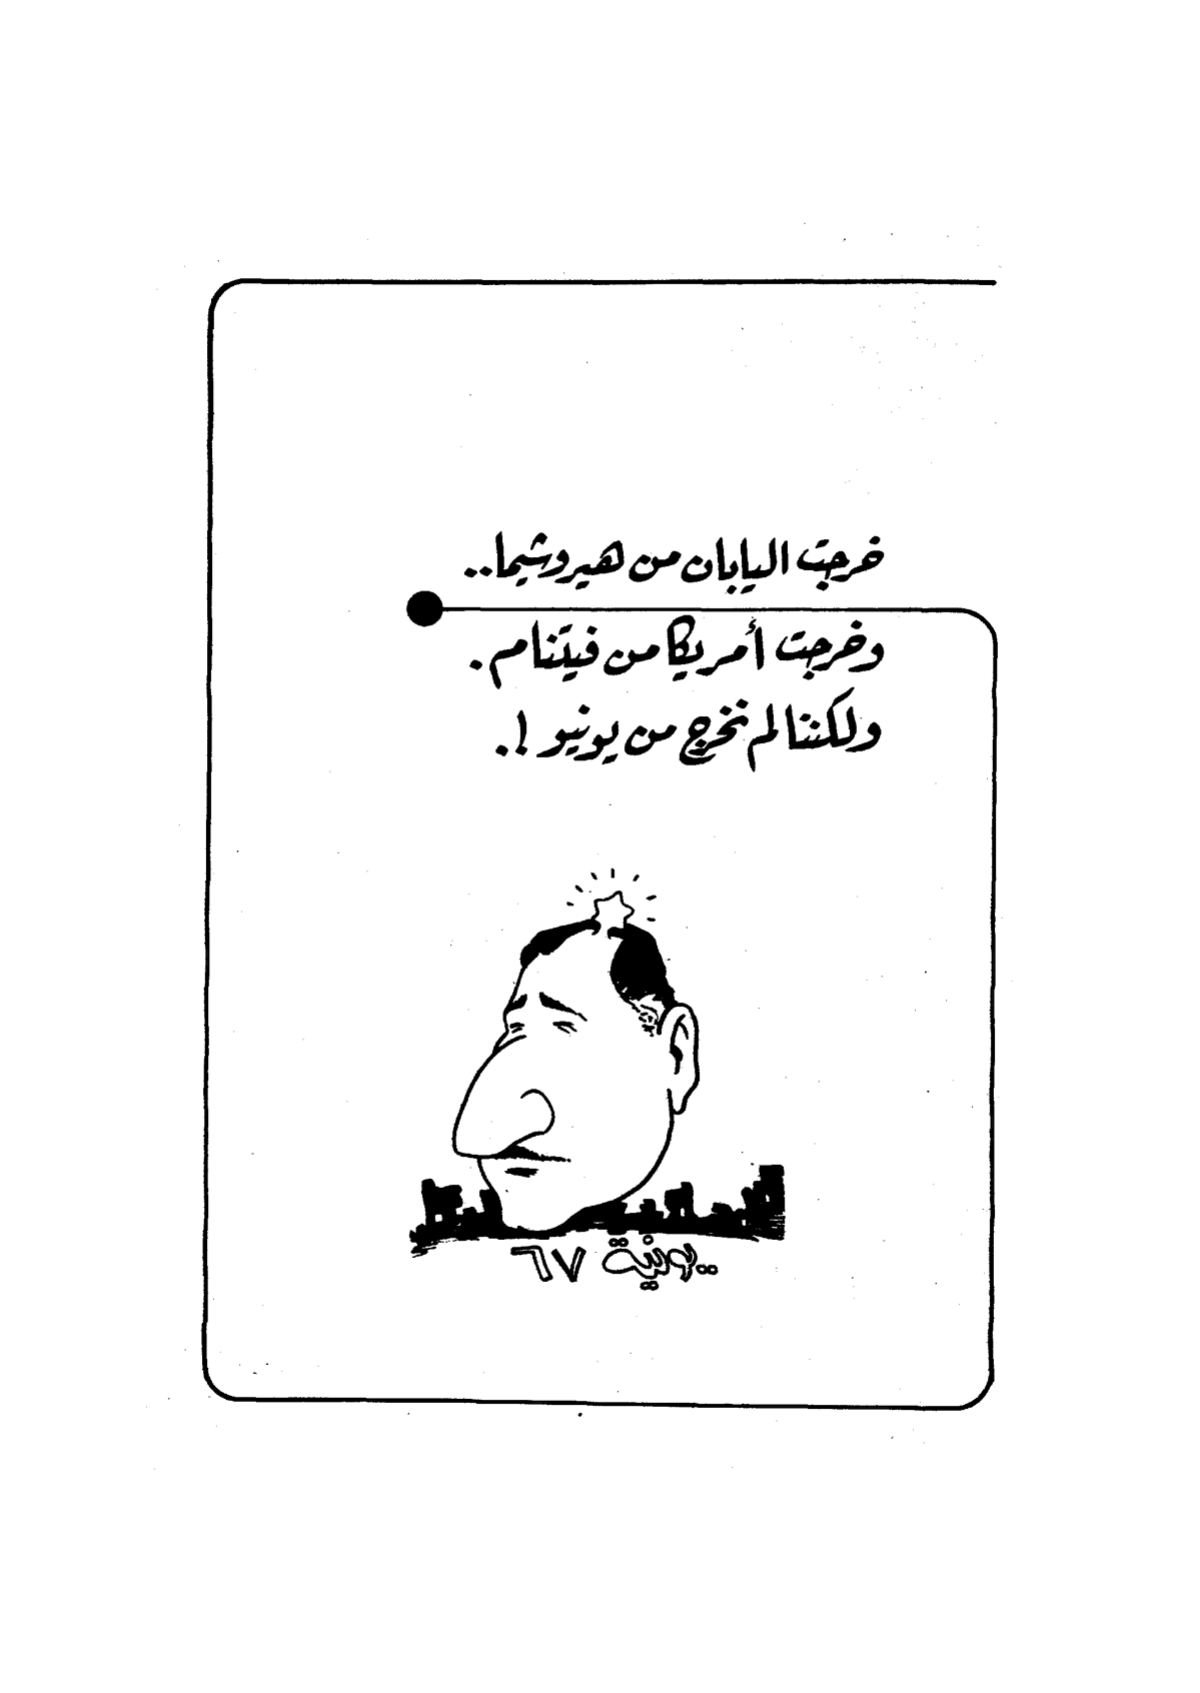 خرجت اليابان من هيروشيما..
وخرجت أمريكا من فيتنام.
ولكننا لم نخرج من يونيو !.
..يونية ٦٧